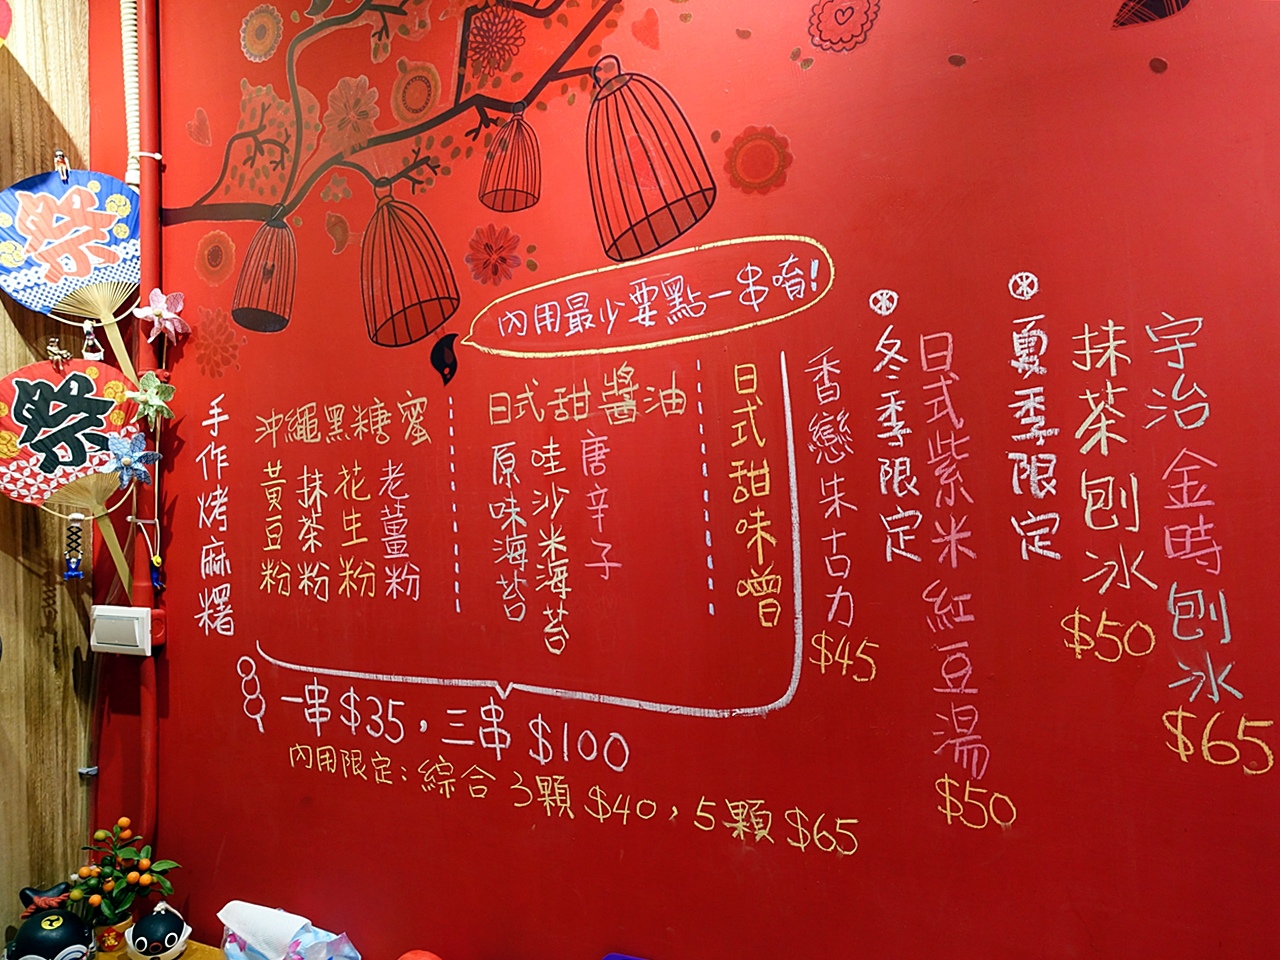 祭
祭
內用最少要點一串唷!
手作烤麻糬
沖繩黑糖蜜
黃豆粉
抹茶粉
花生粉
老薑粉
日式甜醬油
原味海苔
哇沙米海苔
唐辛子
日式甜味噌
一串$35,三串$100
內用限定:綜合3顆$40,5顆$65
香戀朱古力
$45
※冬季限定
日式紫米紅豆湯
$50
※夏季限定
抹茶刨冰
$50
宇治金時刨冰
$65